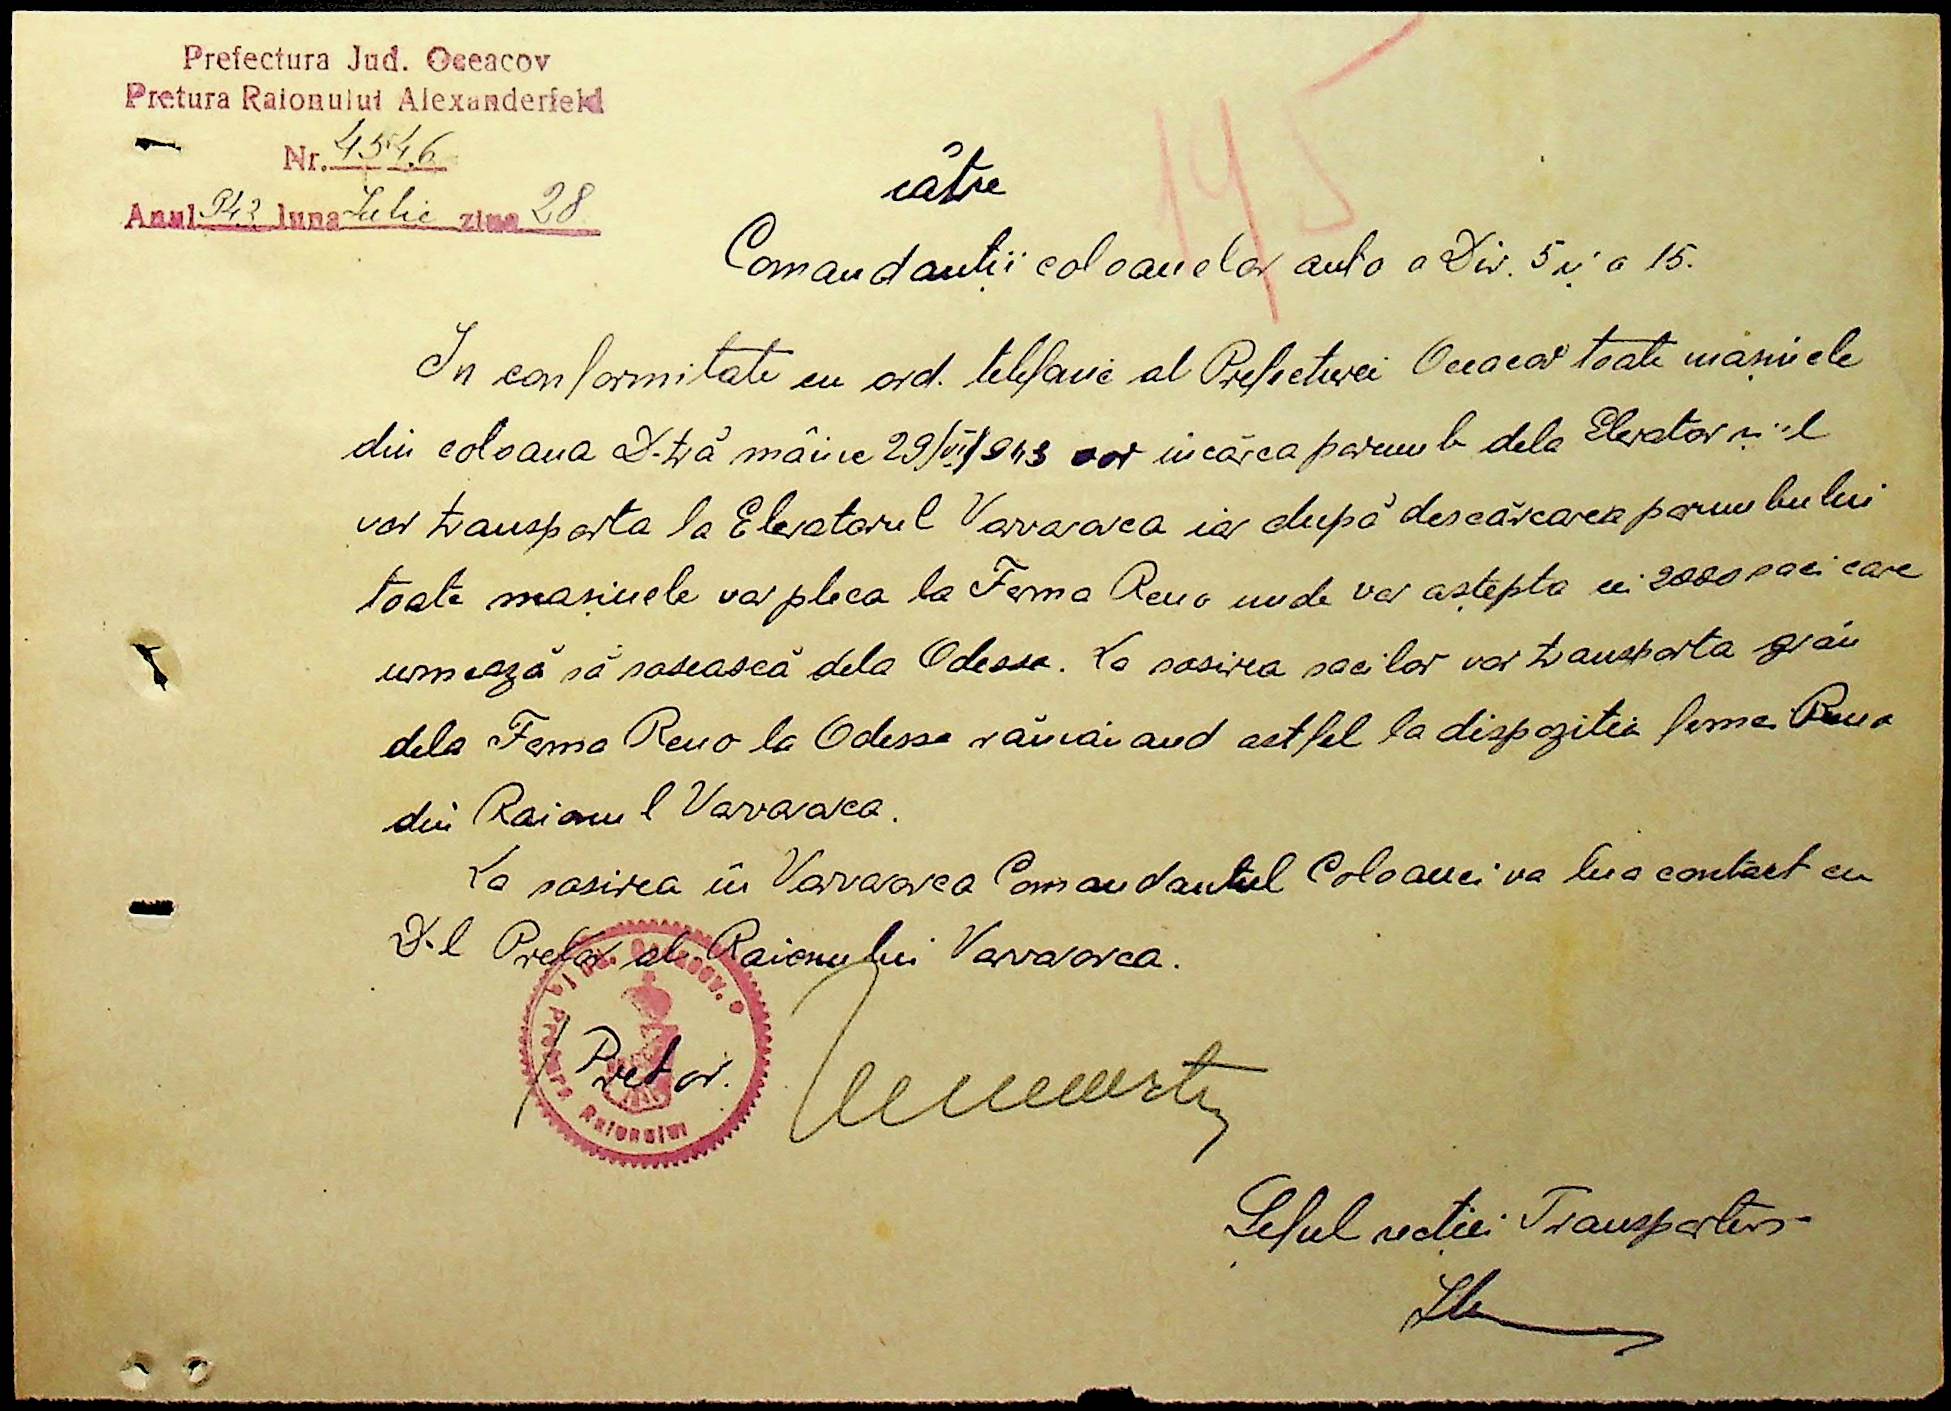 Prefectura Jud. Oceacov
Pretura Raionului Alexanderfeld
Nr. 4546
Anul 943 luna Iulie ziua 28
195
către
Comandanții coloanelor auto a Div. 5 și a 15.
In conformitate cu ord. telefonic al Prefecturei Oceacov toate mașinele
din coloana D-tră mâine 29/VII/943 vor incărca porumb dela Elevator și-l
vor transporta la Elevatorul Varvarovca iar după descărcarea porumbului
toate mașinele vor pleca la Ferma Reno unde vor aștepta cei 2000 saci care
urmează să sosească dela Odessa. La sosirea sacilor vor transporta grâu
dela Ferma Reno la Odessa rămâiand astfel la dispoziția fermei Reno
din Raionul Varvarovca.
La sosirea în Varvarovca Comandantul Coloanei va lua contact cu
D-l Pretor al Raionului Varvarovca.
Pretor.
Pretura Raionului
Șeful secției Transporturi